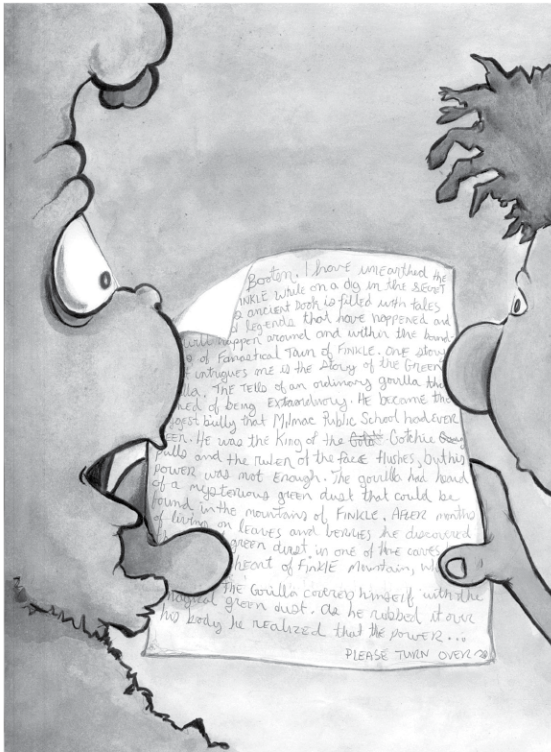 Booten, I have unearthed the
INKLE while on a dig in the SECRET
ancient book is filled with tales
legends that have happened and
will happen around and within the bound-
of Fantastical Town of FINKLE. ONE story
intrigues me is the story of the GREEN
lla. The Tells of an ordinary gorilla tha
med of being Extraordinary. He became the
ggest bully that Milmac Public School had ever
EEN. He was the King of the Gotchie
pulls and the ruler of the FACE flushes, by this
power was not enough. The gorilla had heard
of a mysterious green dust that could be
found in the mountains of FINKLE. AFTER months
of living on leaves and berries he discovered
green dust in one of the caves
heart of FINKLE Mountain, wh
The Gorilla covered himself with the
magical green dust. As he rubbed it over
his body he realized that the power...
PLEASE TURN OVER